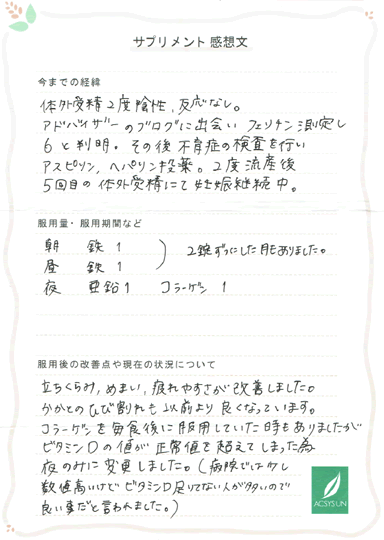 サプリメント 感想文
今までの経緯
体外受精2度陰性、反応なし。
アドバイザーのブログに出会い フェリチン測定し
6と判明。その後 不育症の検査を行い
アスピリン、ヘパリン投薬。2度流産後
5回目の体外受精にて妊娠継続中。
服用量・服用期間など
朝 鉄 1
昼 鉄 1
2錠ずつにした月もありました。
夜 亜鉛1 コラーゲン 1
服用後の改善点や現在の状況について
立ちくらみ、めまい、疲れやすさが改善しました。
かかとのひび割れも以前より良くなっています。
コラーゲンを毎食後に服用していた時もありましたが
ビタミンDの値が正常値を超えてしまった為
夜のみに変更しました。(病院では少し
数値高いけどビタミンD足りてない人が多いので
良い事だと言われました。)
ACSYSUN